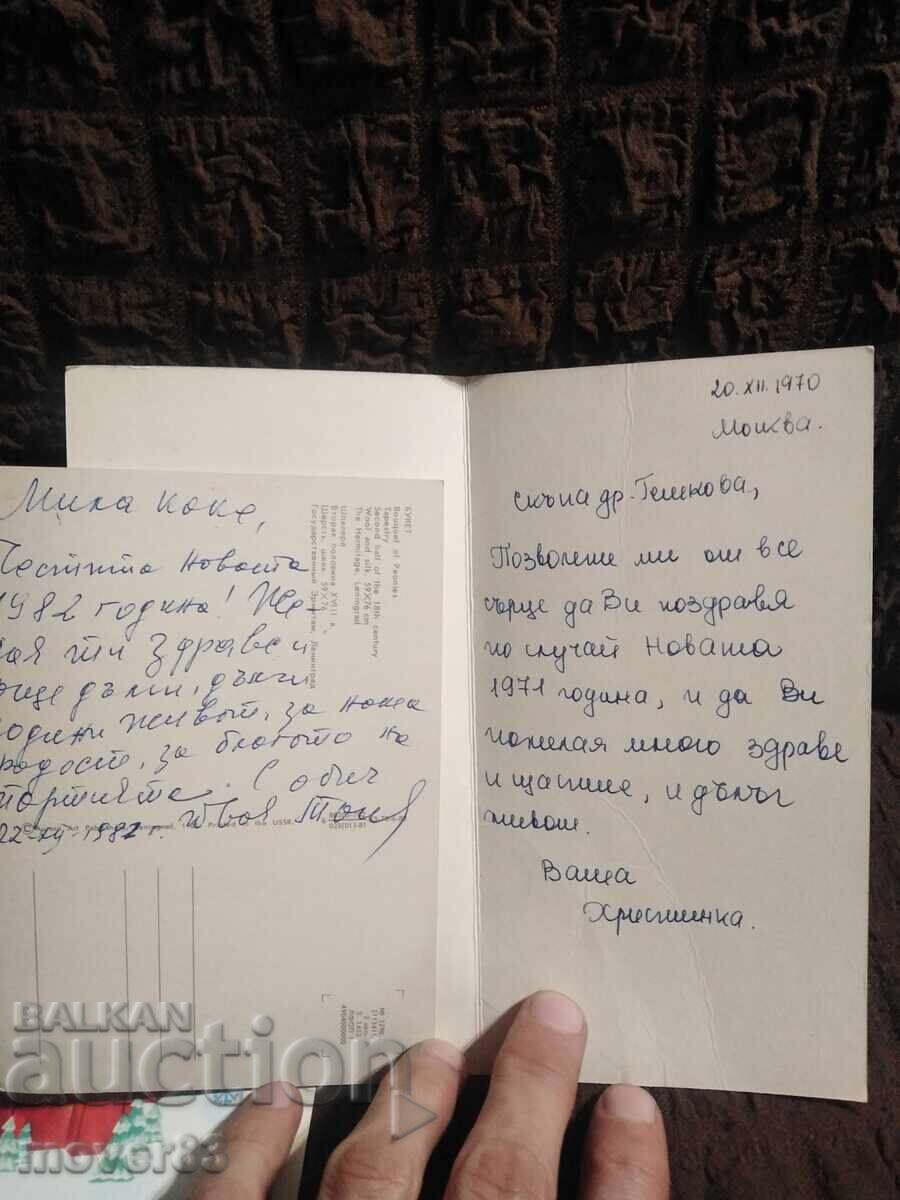 Мила Коке,
Честита Новата
1982 година! Же-
лая ти здраве и
още дълги, дълги
години живот, за наша
радост, за благото на
партията. С обич
22-XII-1981 г. Твоя Тоня
БУКЕТ
Bouquet of Peonies
Tapestry
Second half of the 18th century
Wool and silk. 59×76 cm
The Hermitage, Leningrad
Шпалера
Вторая половина XVIII в.
Шерсть, шелк. 59×76
Государственный Эрмитаж, Ленинград
Printed in the USSR
025(01)-81
4904000000
20.XII.1970
Москва.
Скъпа др. Гешкова,
Позволете ми от все
сърце да Ви поздравя
по случай Новата
1971 година, и да Ви
пожелая много здраве
и щастие, и дълъг
живот.
Ваша
Християнка.
BALKAN
auction
mover83